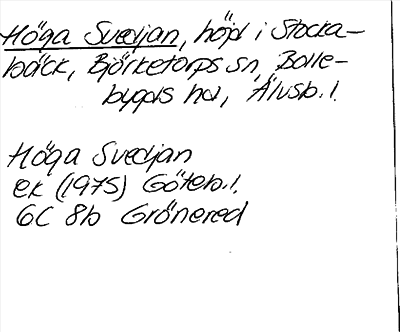 Höga Svedjan, höjd i Stocka-
bäck, Björketorps sn, Bolle-
bygds hd, Älvsb. l.
Höga Svedjan
ek (1975) Göteb. l.
6C 8b Grönered